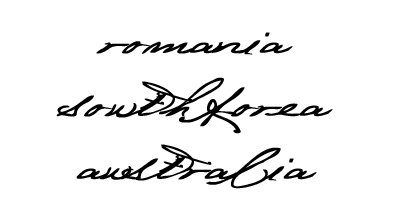 romania
southkorea
australia